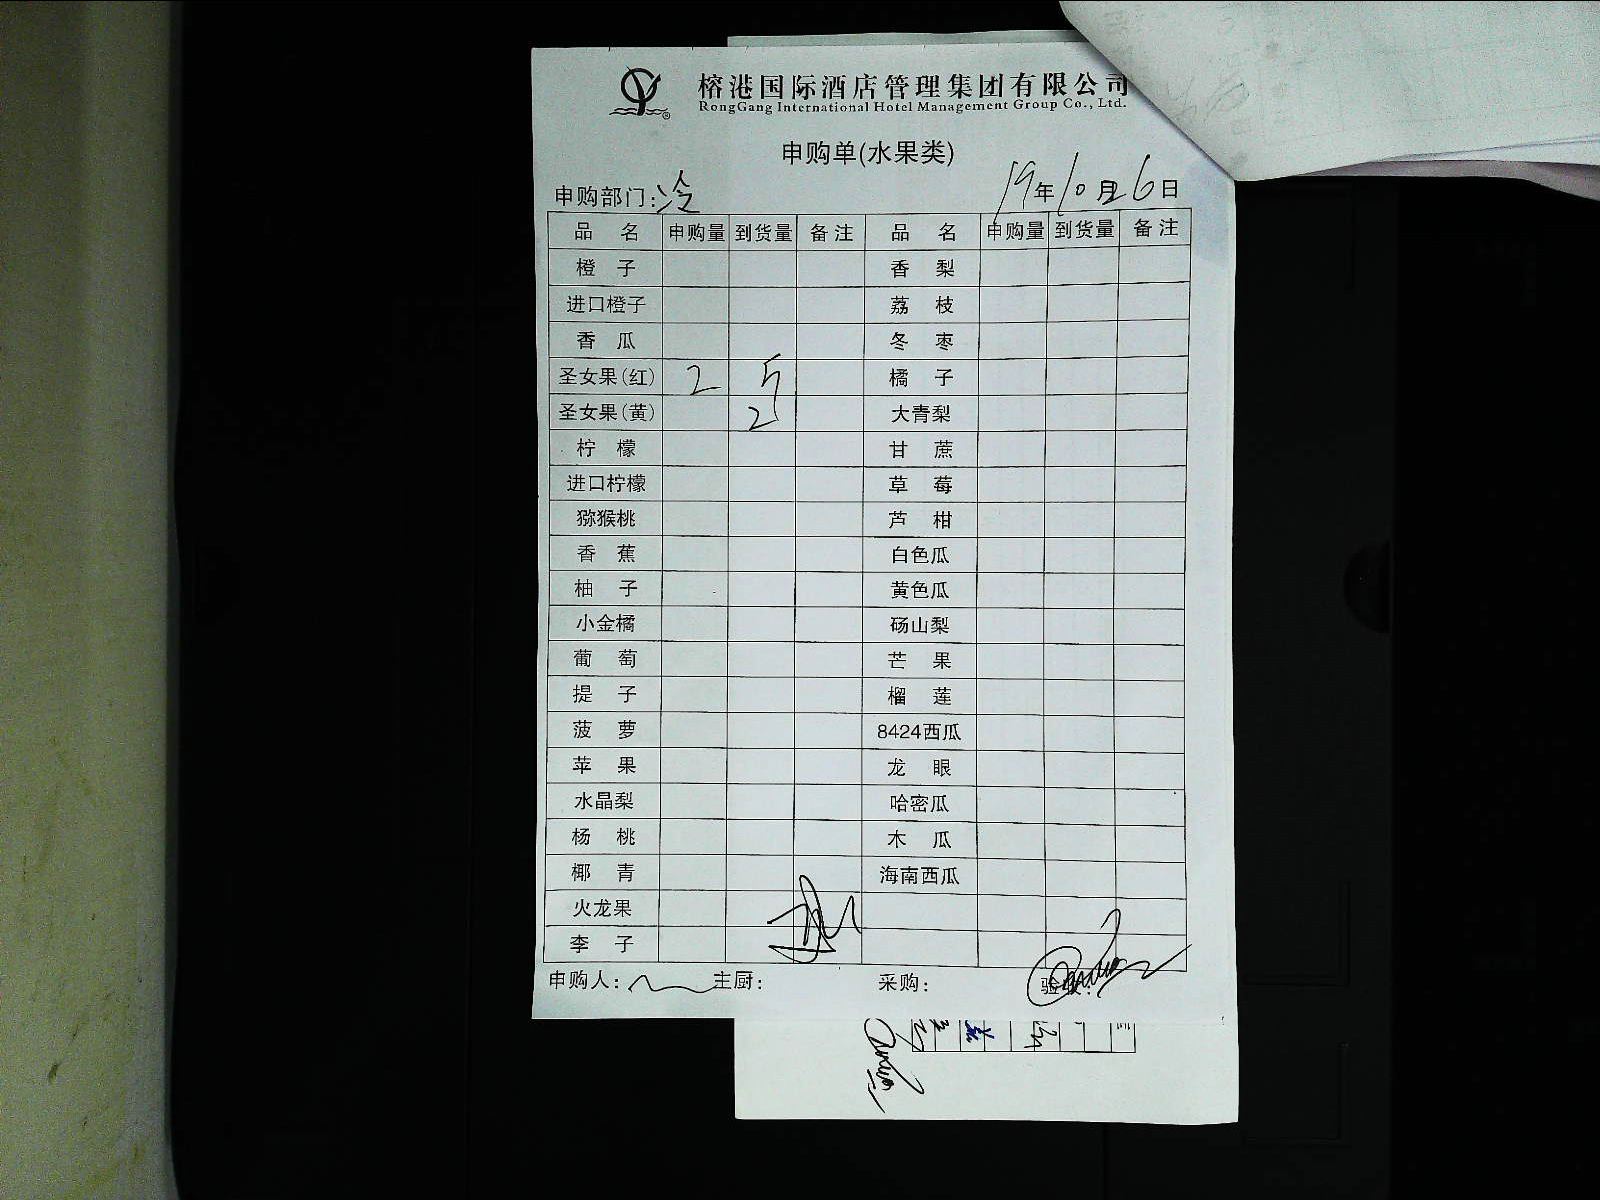 榕港国际酒店管理集团有限公司
RongGang International Hotel Management Group Co., Ltd.
申购单(水果类)
申购部门:冷 19年10月26日
品 名 申购量 到货量 备注 品 名 申购量 到货量 备注
橙 子 香 梨
进口橙子 荔 枝
香 瓜 冬 枣
圣女果(红) 2 5 橘 子
圣女果(黄) 2 大青梨
柠 檬 甘 蔗
进口柠檬 草 莓
猕猴桃 芦 柑
香 蕉 白色瓜
柚 子 黄色瓜
小金橘 砀山梨
葡 萄 芒 果
提 子 榴 莲
菠 萝 8424西瓜
苹 果 龙 眼
水晶梨 哈密瓜
杨 桃 木 瓜
椰 青 海南西瓜
火龙果
李 子
申购人: 主厨: 采购: 验收: